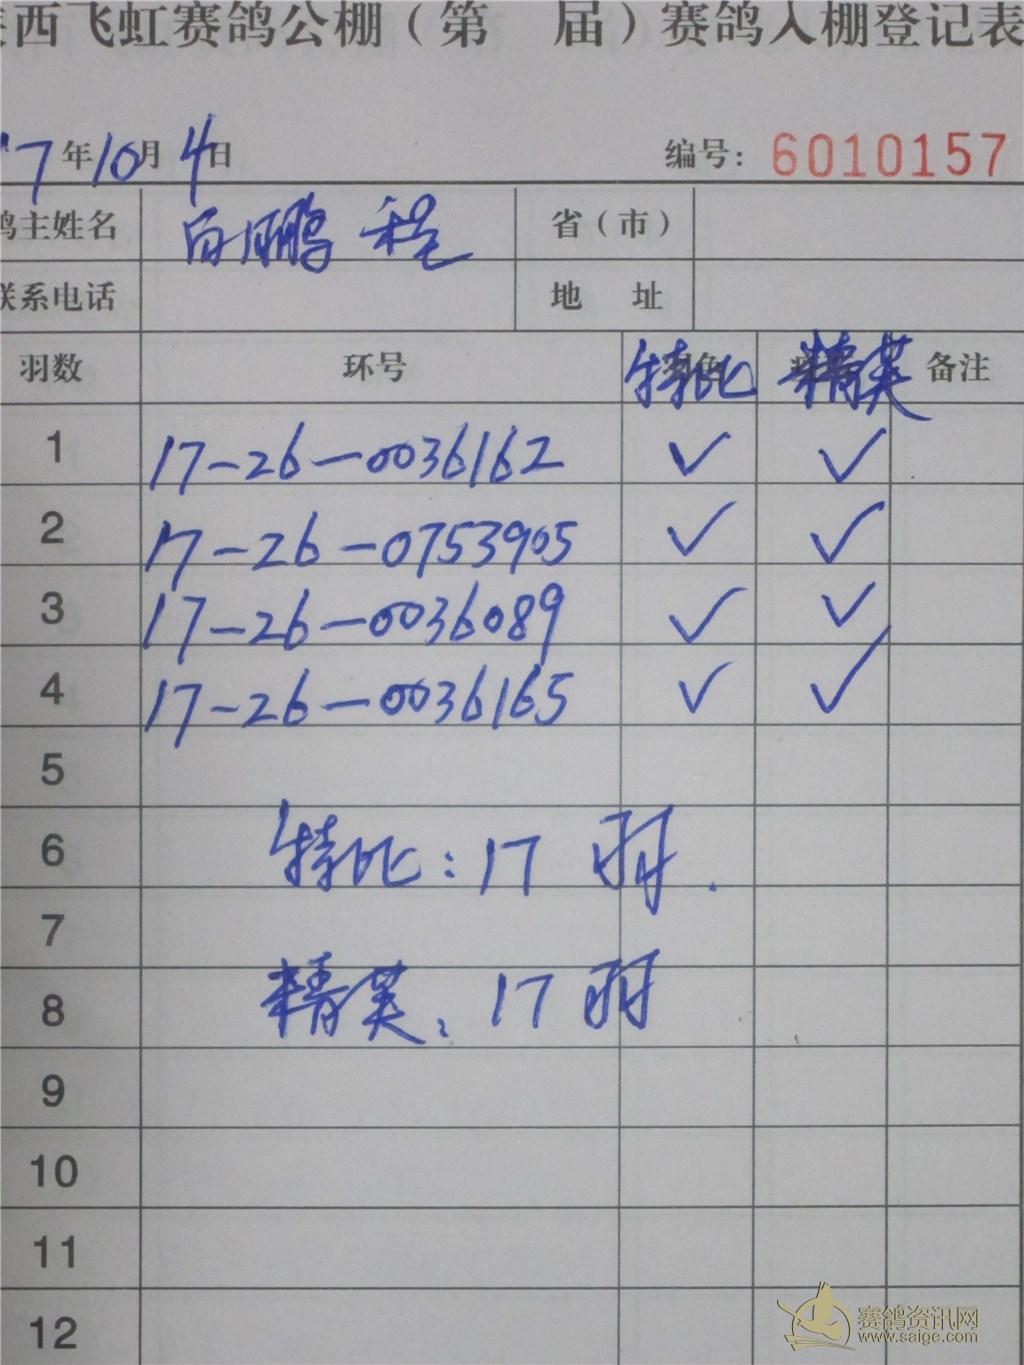 西飞虹赛鸽公棚（第 届）赛鸽入棚登记表
17年10月4日 编号：6010157
鸽主姓名 白鹏程 省（市）
联系电话 地 址
羽数 环号 特比 精英 备注
1 17-26-0036162 ✓ ✓
2 17-26-0753905 ✓ ✓
3 17-26-0036089 ✓ ✓
4 17-26-0036165 ✓ ✓
5
6 特比：17 羽.
7
8 精英：17 羽
9
10
11
12
赛鸽资讯网
www.saige.com